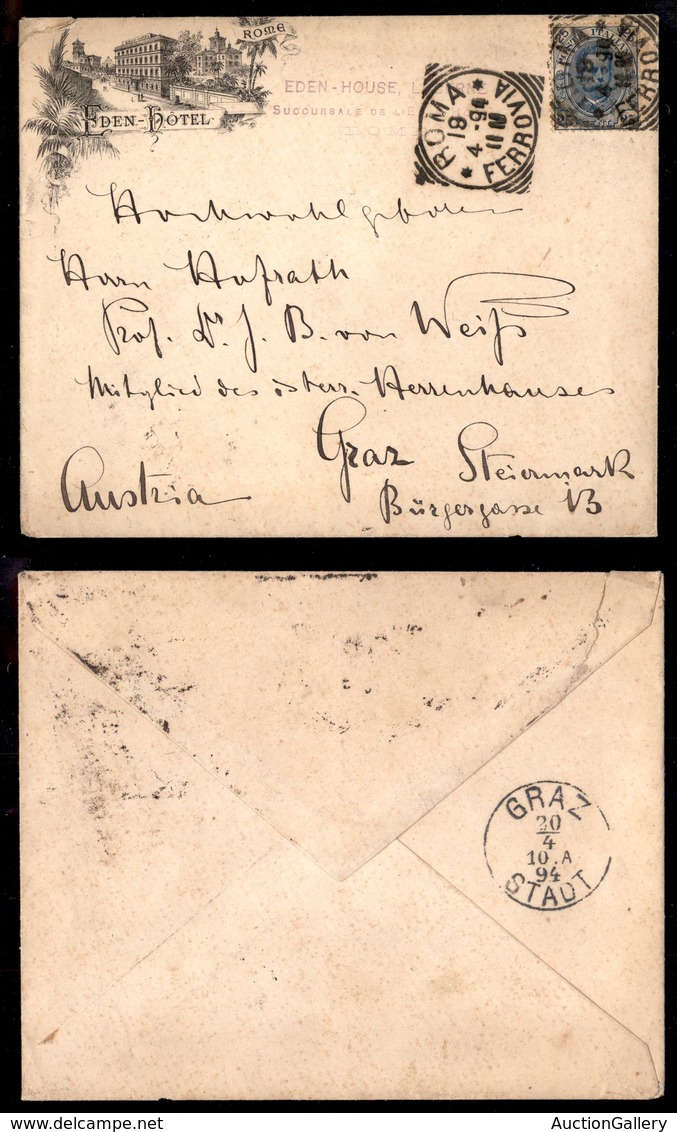 ROME
EDEN-HÔTEL
EDEN-HOUSE,
SUCCOURSALE DE L'E
ROMA
18
4 - 94
11
FERROVIA
FERROV
Hochwohlgeboren
Herrn Hofrath
Prof. Dr. J. B. von Weiß
Mitglied des österr. Herrenhauses
Graz Steiermark
Austria
Bürgergasse 13
GRAZ
20
4
10.A
94
STADT
AuctionGallery